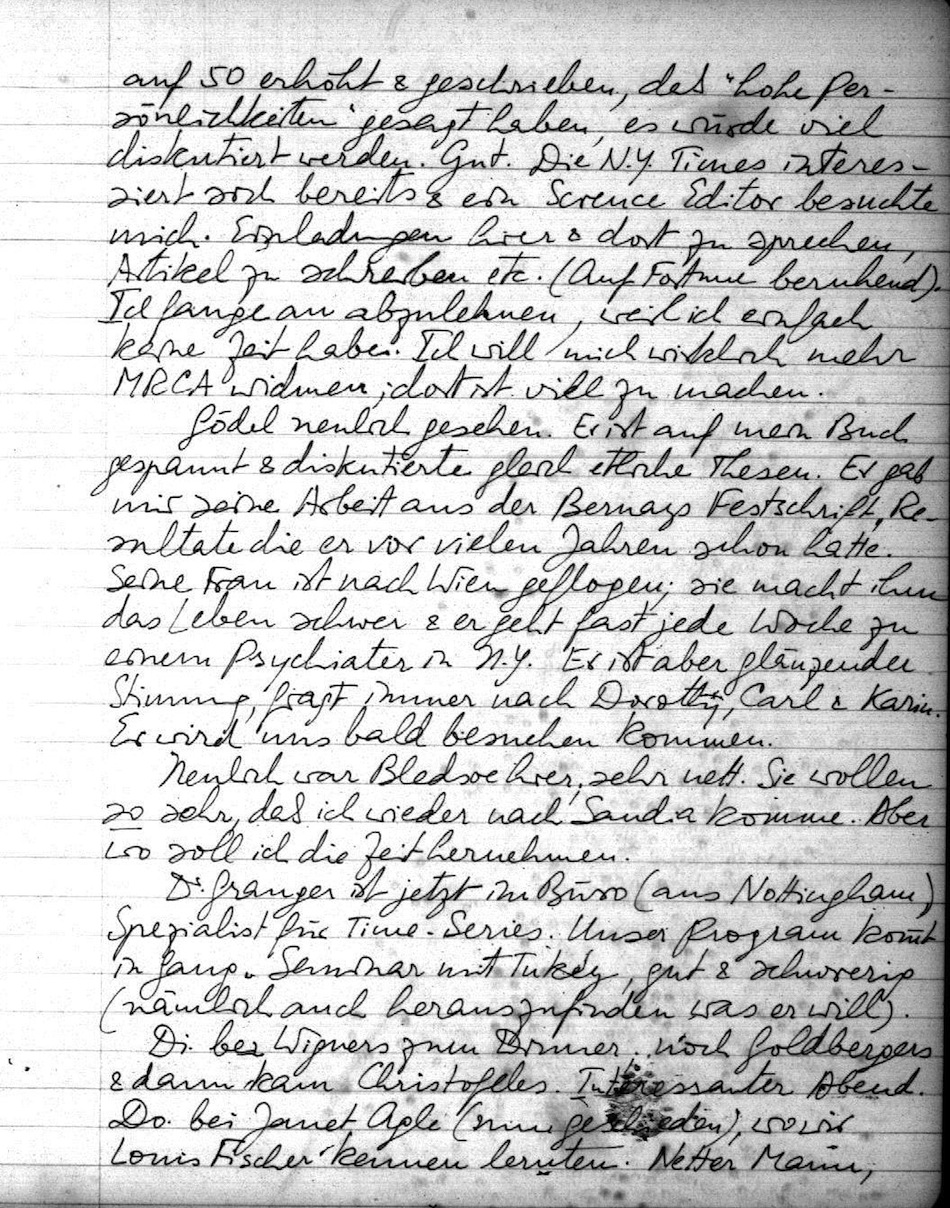 auf 50 erhöht & geschrieben, daß "hohe Per-
sönlichkeiten" gesagt haben, es würde viel
diskutiert werden. Gut. Die N.Y. Times interes-
siert sich bereits & ein Science Editor besuchte
mich. Einladungen hier & dort zu sprechen,
Artikel zu schreiben etc. (Auf Fortune beruhend).
Ich fange an abzulehnen, weil ich einfach
keine Zeit habe. Ich will mich wirklich mehr
MRCA widmen; dort ist viel zu machen.
Gödel neulich gesehen. Er ist auf mein Buch
gespannt & diskutierte gleich etliche Thesen. Er gab
mir seine Arbeit aus der Bernays Festschrift, Re-
sultate die er vor vielen Jahren schon hatte.
Seine Frau ist nach Wien geflogen; sie macht ihm
das Leben schwer & er geht fast jede Woche zu
einem Psychiater in N.Y. Er ist aber glänzender
Stimmung, fragt immer nach Dorothy, Carl & Karin.
Er wird uns bald besuchen kommen.
Neulich war Bledsoe hier, sehr nett. Sie wollen
so sehr, daß ich wieder nach Sandia komme. Aber
wo soll ich die Zeit hernehmen.
Dr. Granger ist jetzt im Büro (aus Nottingham)
Spezialist für Time-Series. Unser Program kom̄t
in Gang. Seminar mit Tukey, gut & schwierig
(nämlich auch herauszufinden was er will).
Di. bei Wigners zum Dinner. Noch Goldbergers
& dann kam Christofeles. Interessanter Abend.
Do. bei Janet Agle (nun geschieden), wo wir
Louis Fischer kennen lernten. Netter Mann,